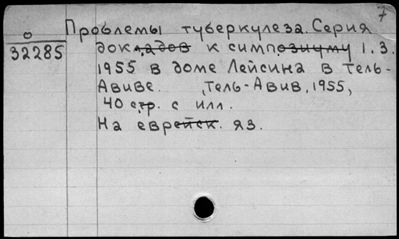 7
Проблемы туберкулеза. Серия
о
32285
докладов к симпозиуму 1.3.
1955 в доме Лейсина в Тель-
Авиве. Тель-Авив, 1955,
40 стр. с илл.
На еврейск. яз.